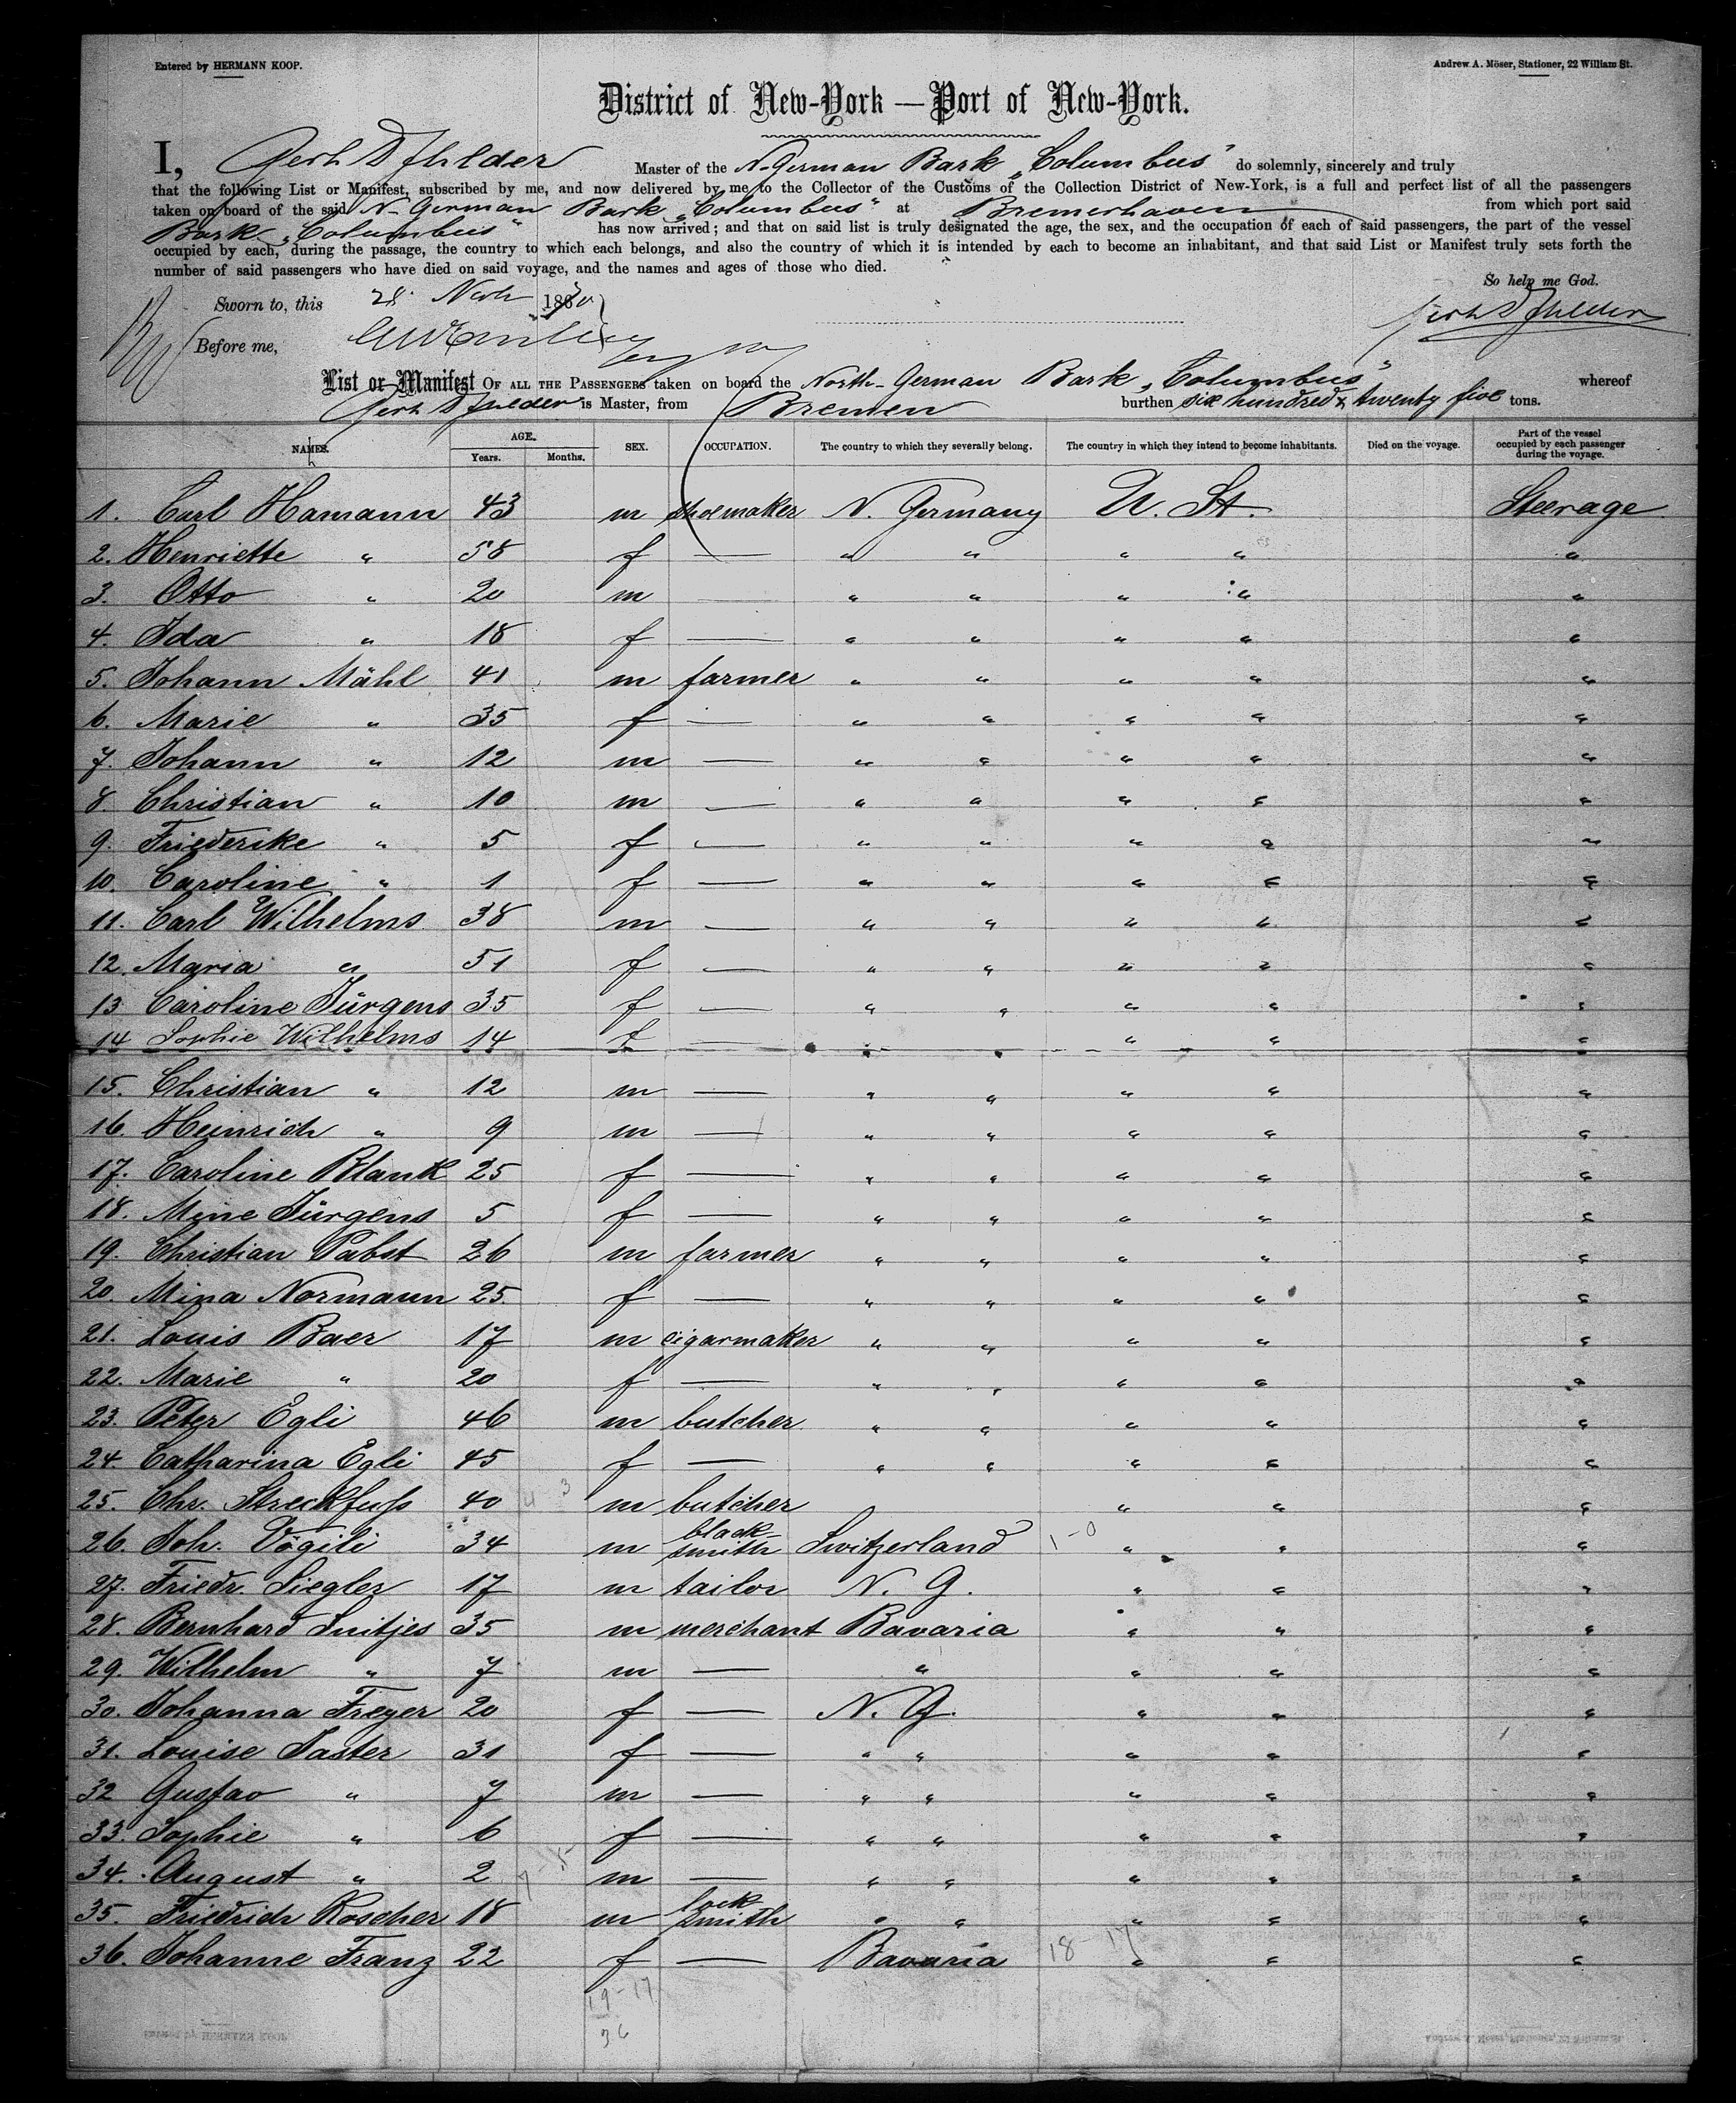 Entered by HERMANN KOOP.
Andrew A. Möser, Stationer, 22 William St.
District of New-York — Port of New-York.
I, Gerh D Master of the N. German Bark „Columbus" do solemnly, sincerely and truly
that the following List or Manifest, subscribed by me, and now delivered by me to the Collector of the Customs of the Collection District of New-York, is a full and perfect list of all the passengers
taken on board of the said N- German Bark „Columbus" at Bremerhaven from which port said
Bark „Columbus" has now arrived; and that on said list is truly designated the age, the sex, and the occupation of each of said passengers, the part of the vessel
occupied by each, during the passage, the country to which each belongs, and also the country of which it is intended by each to become an inhabitant, and that said List or Manifest truly sets forth the
number of said passengers who have died on said voyage, and the names and ages of those who died.
So help me God.
Sworn to, this 28. 18
Gerh D
Before me,
List or Manifest OF ALL THE PASSENGERS taken on board the North-German Bark „Columbus" whereof
Gerh D is Master, from Bremen burthen six hundred & twenty five tons.
NAMES. AGE. Years. Months. SEX. OCCUPATION. The country to which they severally belong. The country in which they intend to become inhabitants. Died on the voyage. Part of the vessel occupied by each passenger during the voyage.
1. Carl Hamann 43 m shoemaker N. Germany U. St. Steerage
2. Henriette " 58 f — " " " " "
3. Otto " 20 m — " " " " "
4. Ida " 18 f — " " " " "
5. Johann Mähl 41 m farmer " " " " "
6. Marie " 35 f — " " " " "
7. Johann " 12 m — " " " " "
8. Christian " 10 m — " " " " "
9. Friederike " 5 f — " " " " "
10. Caroline " 1 f — " " " " "
11. Carl Wilhelms 38 m — " " " " "
12. Maria " 51 f — " " " " "
13 Caroline Jürgens 35 f — " " " " "
14 Sophie Wilhelms 14 f — " " " " "
15. Christian " 12 m — " " " " "
16. Heinrich " 9 m — " " " " "
17. Caroline Blank 25 f — " " " " "
18. Mine Jürgens 5 f — " " " " "
19. Christian Pabst 26 m farmer " " " " "
20. Mina Normann 25. f — " " " " "
21. Louis Baer 17 m cigarmaker " " " " "
22. Marie " 20 f — " " " " "
23. Peter Egli 46 m butcher " " " " "
24. Catharina Egli 45 f — " " " " "
25. Chr. Streckfuß 40 m butcher " " "
26. Joh. Vögili 34 m black-smith Switzerland 1-0 " " "
27. Friedr. Siegler 17 m tailor N. G. " " "
28. Bernhard Suitjes 35 m merchant Bavaria " " "
29. Wilhelm " 7 m — " " " "
30. Johanna Freyer 20 f — N. G. " " "
31. Louise Taster 31 f — " " " " "
32 Gustav " 7 m — " " " " "
33. Sophie " 6 f — " " " " "
34. August " 2 m — " " " " "
35. Friedrich Koscher 18 m lock smith " " " " "
36. Johanne Franz 22 f — Bavaria 18-17 " " "
19-17
36